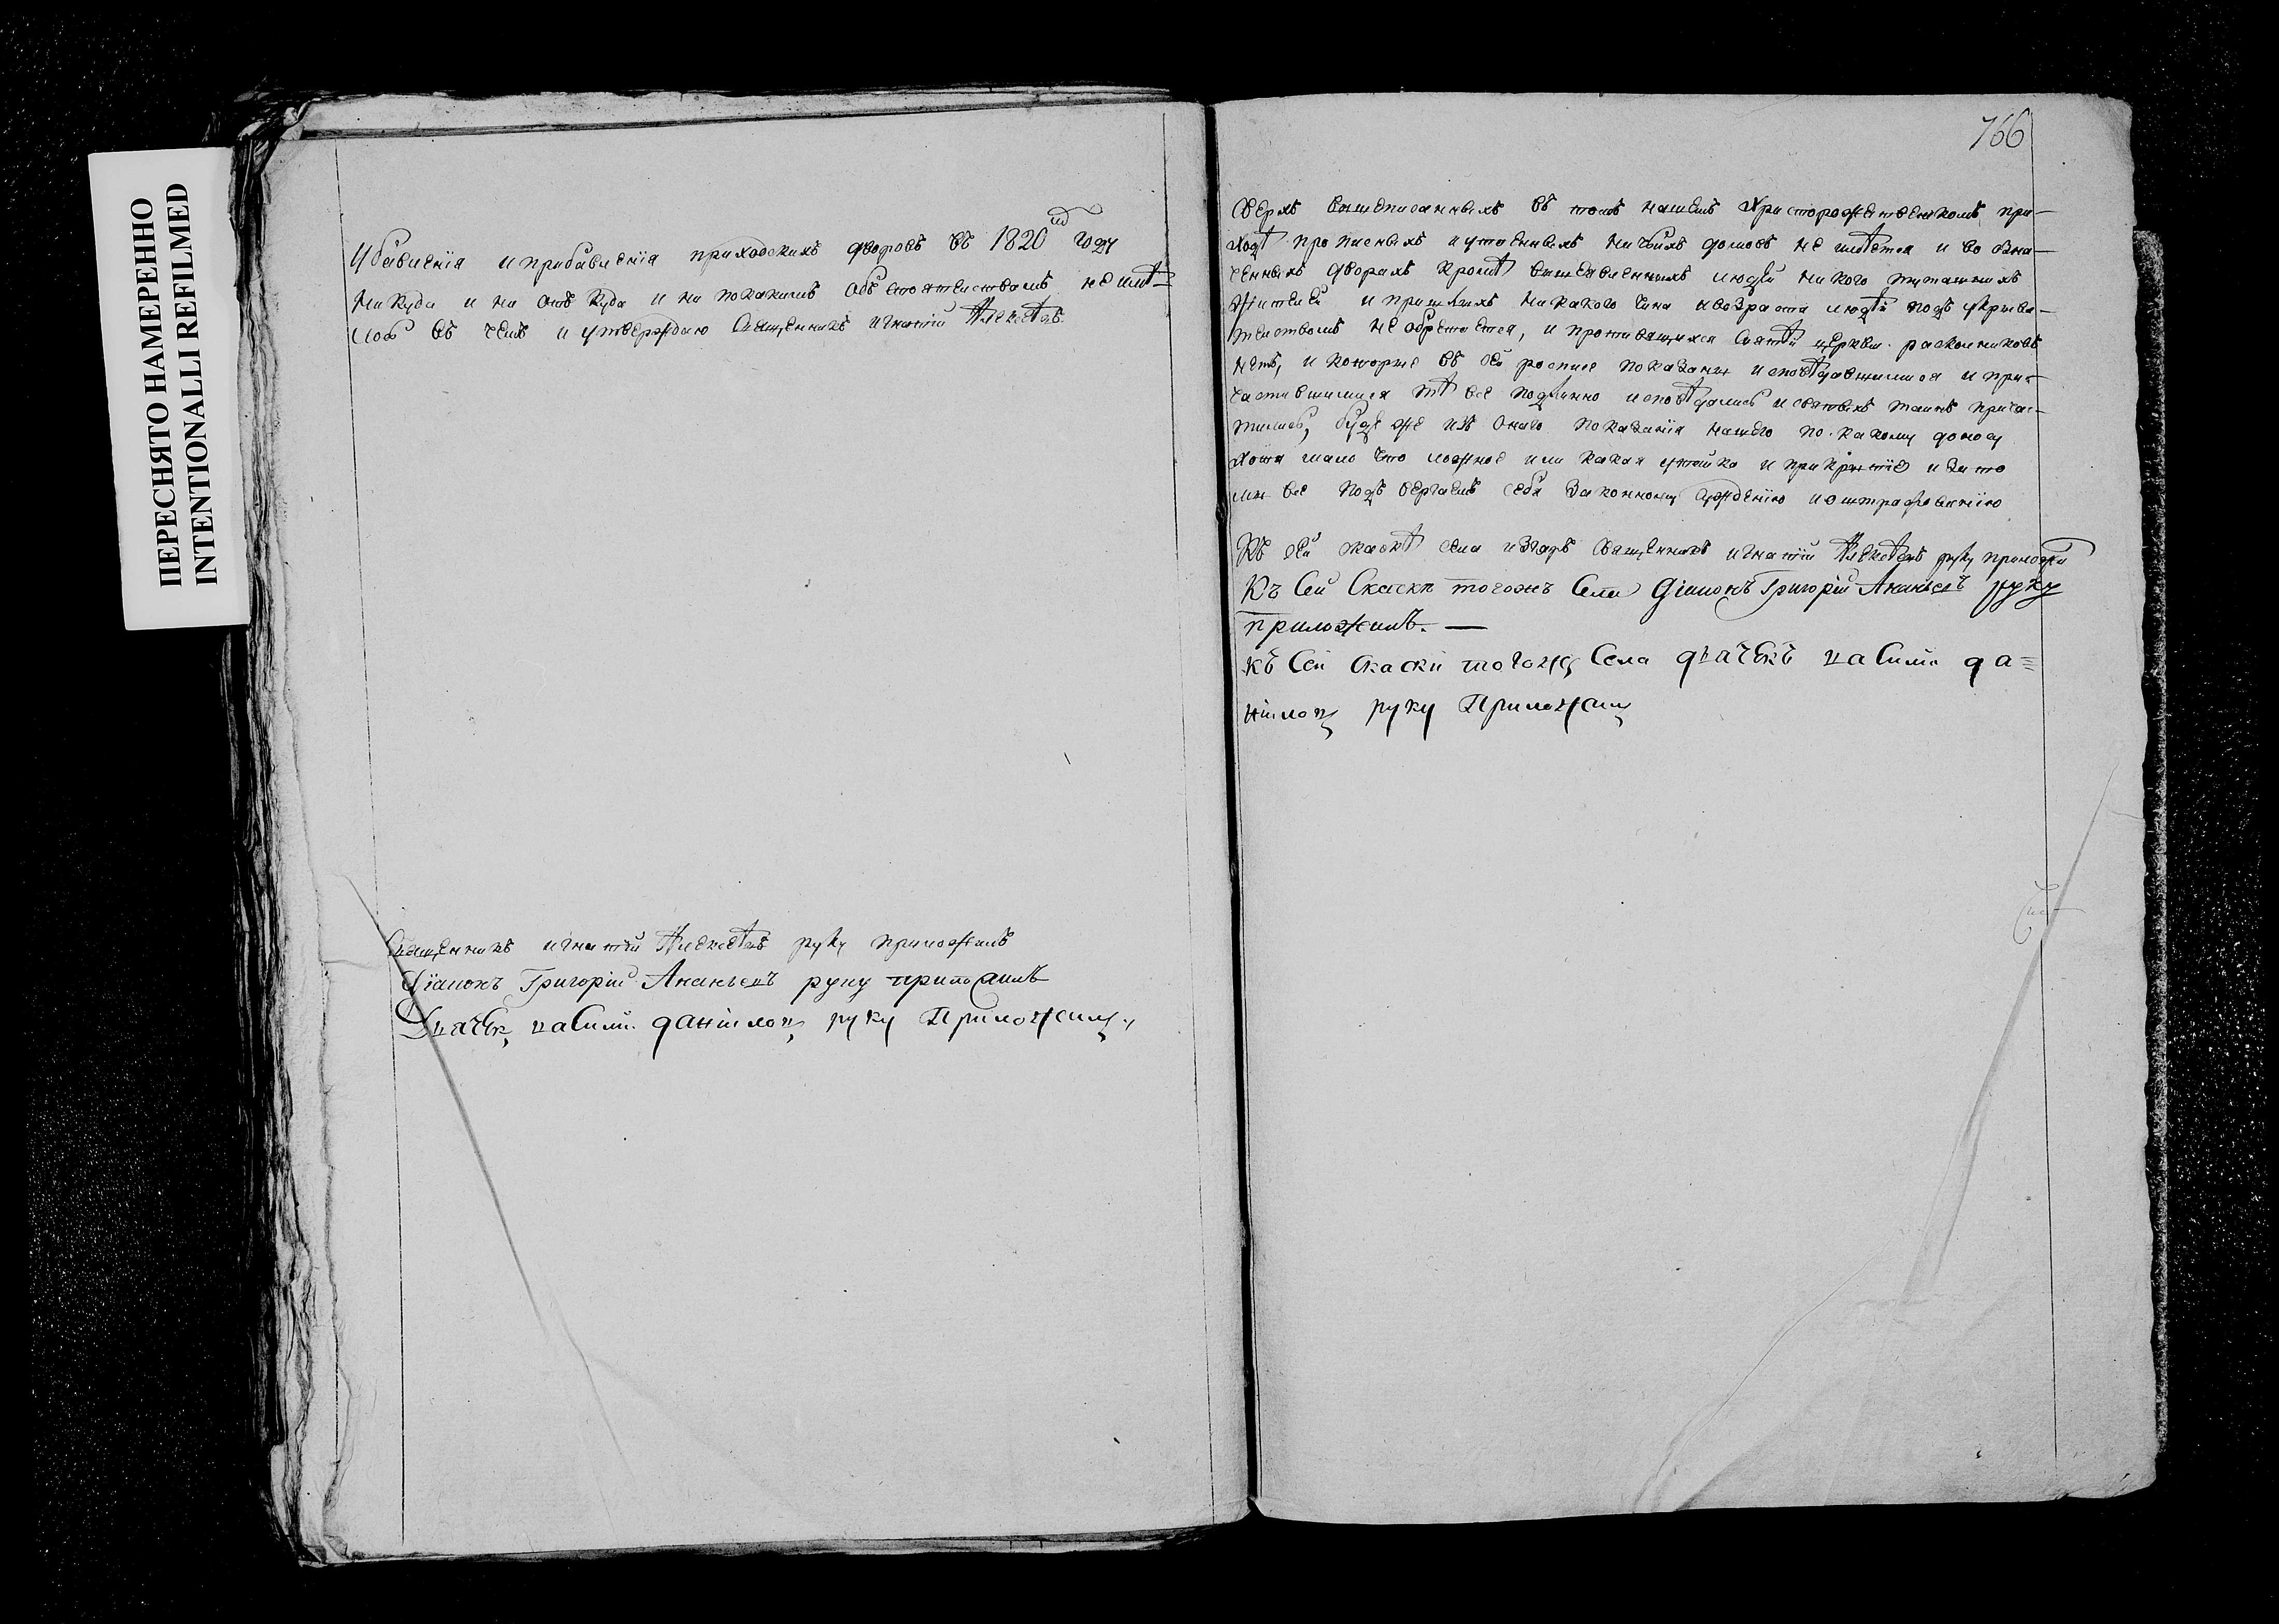 ПЕРЕСНЯТО НАМЕРЕННО
INTENTIONALLI REFILMED
Убавленія и прибавленія приходскихъ дворовъ въ 1820мъ году
ни куда и ни отъ куда и ни покакимъ обстоятельствамъ не имѣ-
лось въ чемъ и утверждаю Священникъ игнатій Алексѣевъ
Священникъ игнатій Алексѣевъ руку приложилъ
Діаконъ Григорій Ананьевъ руку приложилъ
Дьячекъ василий даниловъ руку Приложилъ
766
Сверхъ вышеписанныхъ въ томъ нашемъ Христорождественскомъ при-
ходѣ прописныхъ и утаенныхъ ничьихъ домовъ не имѣется и во озна-
ченныхъ дворахъ кромѣ вышеявленныхъ людей никого туташнихъ
жителей и пришлыхъ никакого чина и возраста людей подъ укрыва-
тельствомъ не обретается, и противящихся Святей церкви раскольниковъ
нетъ, и которые въ сей росписе показаны исповѣдавшимися и при-
частившимися тѣ все подлинно исповѣдались и святыхъ таинъ прича-
тились, буде же изъ онаго показанія нашего по какому доносу
хотя мало что ложное или какая утайка и прикрытіе и за то
мы все подъ вергаемъ себя законному суждению и оштрафованию
Къ сей скаскѣ села Священникъ игнатій Алексѣевъ руку приложилъ
Къ Сей Скаскѣ тогожъ Села Діаконъ Григорій Ананьевъ руку
приложилъ. —
къ Сей скаски тогожъ Села дьячекъ василий да=
ниловъ руку Приложилъ